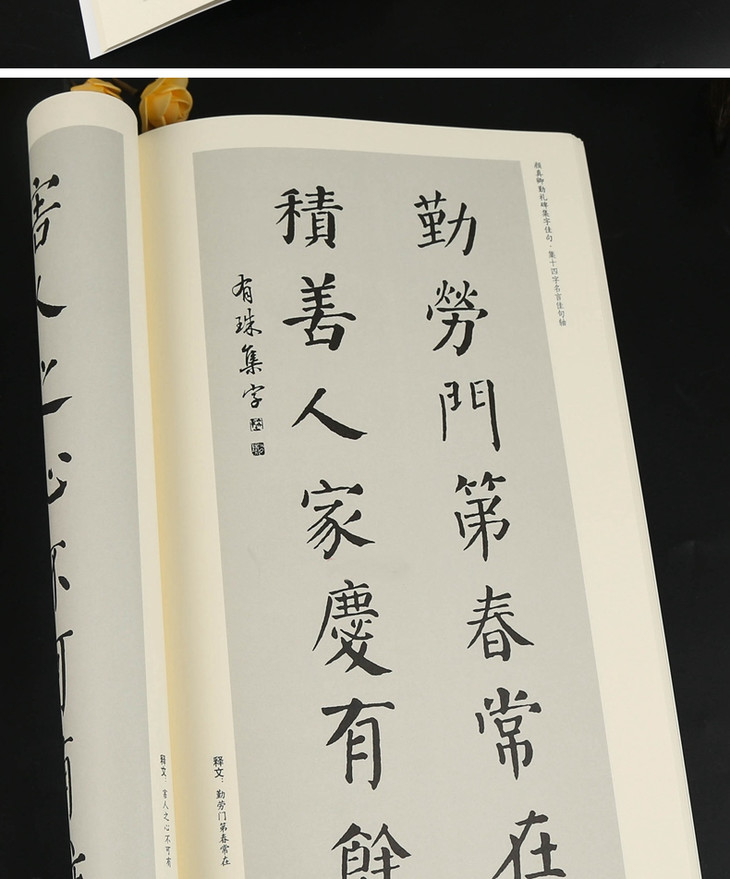 颜真卿勤礼碑集字佳句·集十四字名言佳句轴
勤勞門第春常在
積善人家慶有餘
有珠集字
释文：勤劳门第春常在
释文：害人之心不可有
害人之心不可有